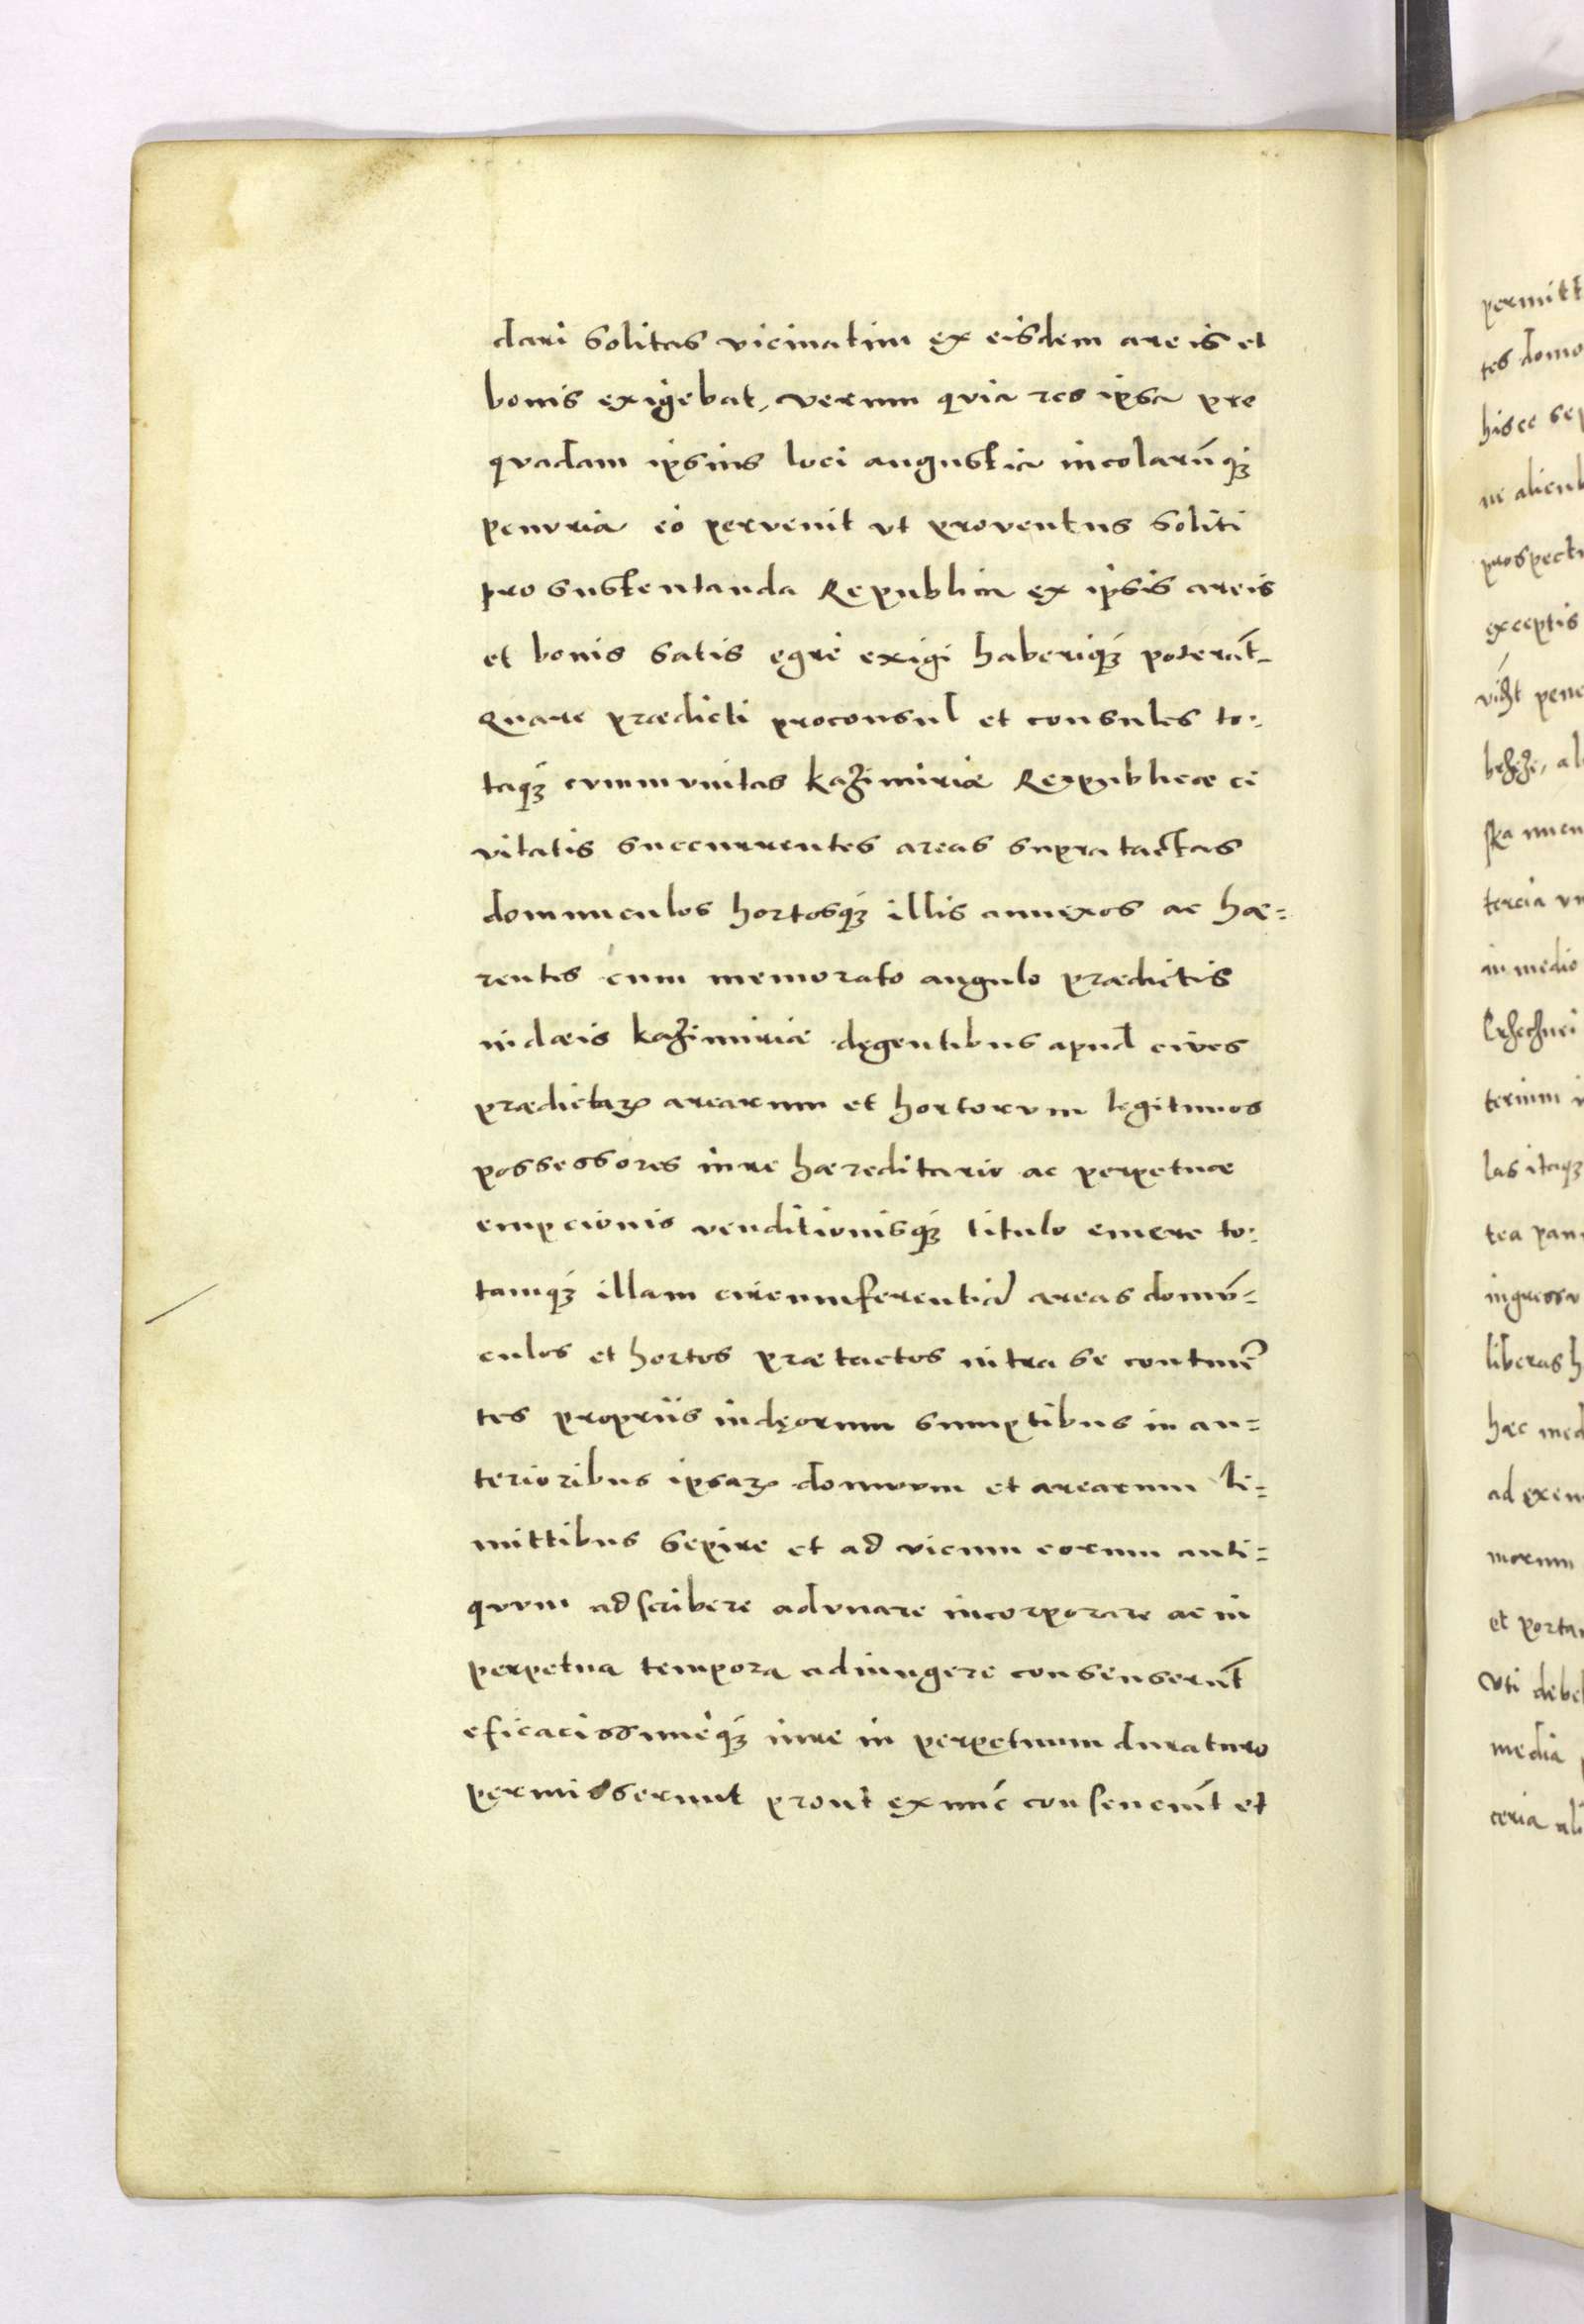 dari solitas vicinatim ex eisdem areis et
bonis exigebat, verum quia res ipsa pre
quadam ipsius loci angustia incolarūq́ꝫ
penuria eò pervenit ut proventus soliti
pro sustentanda Republica ex ipsis areis
et bonis satis egrè exigi haberiq́ꝫ poterāt
Quare prædicti proconsul et consules to:
taq́ꝫ cummunitas Kaʒimiriæ Reipublicæ ci
vitatis succurrentes areas supra tactas
domunculos hortosq́ꝫ illis annexos ac hæ=
rentes cum memorato angulo prædictis
iudæis Kaʒimiriæ degentibus apud cives
prædictaꝝ arearum et hortorum legitimos
possessores iure hæreditario ac perpetuæ
empcionis venditionisq́ꝫ titulo emere to:
tamq́ꝫ illam circumferentiā areas domū=
culos et hortos præ tactos intra se continē
tes propriis iudęorum sumptibus in an=
terioribus ipsaꝝ domuum et arearum li=
mittibus sepire et ad vicum eorum anti=
quum adscribere adunare incorporare ac in
perpetua tempora adiungere consenserūt
eficacissimeq́ꝫ iure in perpetuum duraturo
permisserunt prout ex nūc consenciūt et
permitt
tes domo
hisce
prospectu
exceptis
ska
tercia
in medio
las itaqꝫ
ingressu
liberas
hæc med
et porta
Uti debe
media